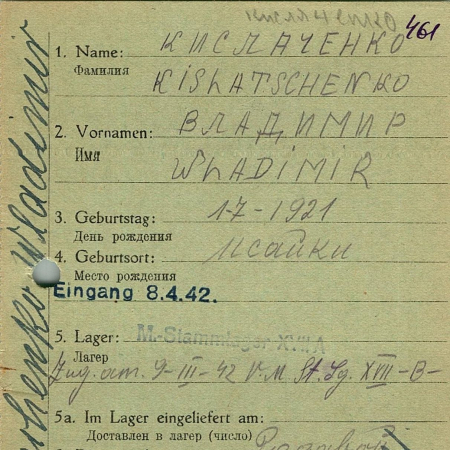 Кислаченко 461
1. Name: КИСЛАЧЕНКО
Фамилия
KISLATSCHENKO
2. Vornamen: ВЛАДИМИР
Имя
WLADIMIR
3. Geburtstag: 1-7-1921
День рождения
4. Geburtsort: Исайки
Место рождения
Eingang 8.4.42.
5. Lager: M.-Stammlager XVII A
Лагер
Zug. am. 9-III-42 V. M. St. Lg. XVII-B-
5a. Im Lager eingeliefert am:
Доставлен в лагер (число)
henko Wladimir